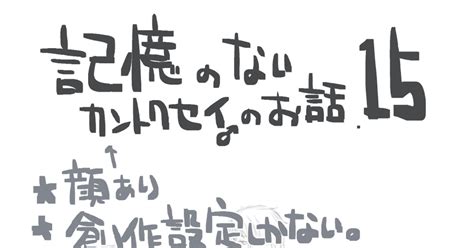 記憶のない
カントクセイ♂のお話.15
↑
★顔あり
★創作設定しかない。